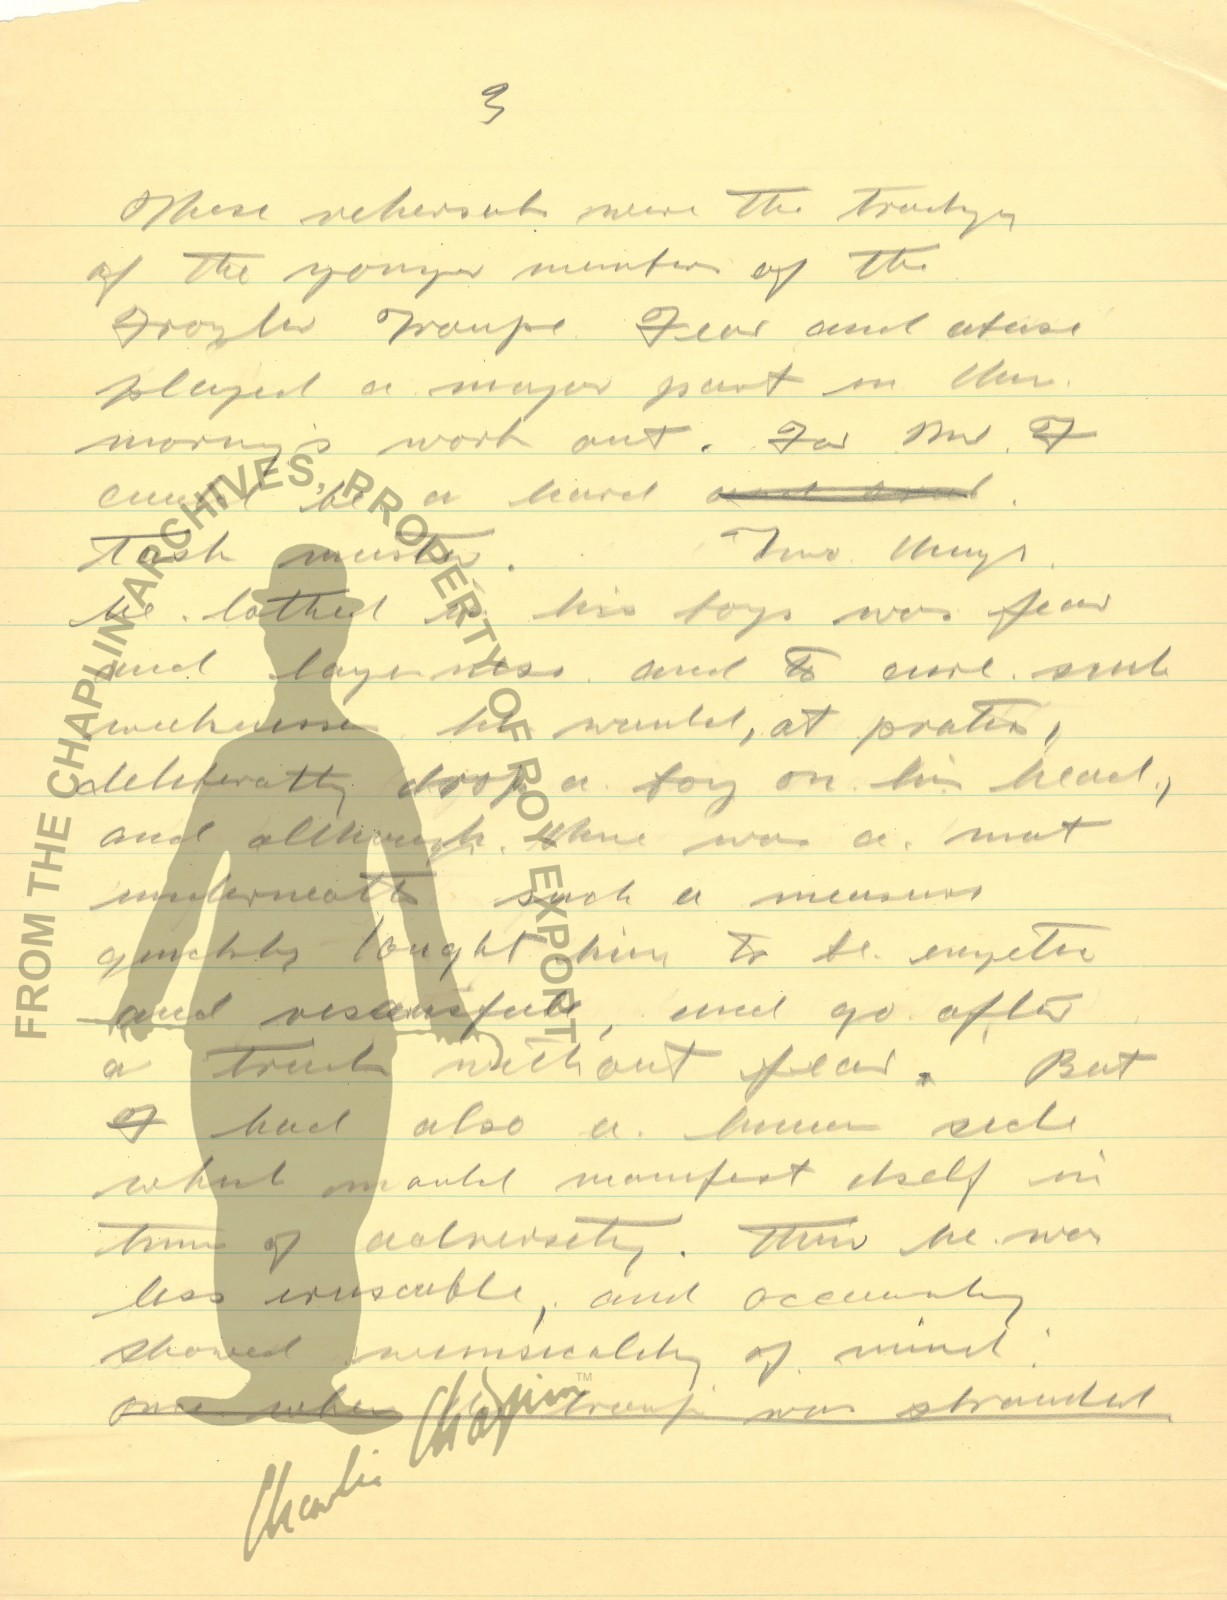 3
These rehersals were the tradgy
of the younger members of the
Troupe. Fear and abuse
played a major part in
morny's work out. For Mr. F
could be a hard
task master. Two things
he lothed in his boys was fear
and layeness and to cure such
weeknesses he would, at
deliberatly drop a boy on his head,
and although there was a mat
underneath such a measure
quickly taught him to be
and go after
a trick without fear. But
F had also a human side
which would manifest itself in
times of adversity. Then he was
less irrascable, and
showed whimsicality of mind.
once when the troup was stranded
FROM THE CHAPLIN ARCHIVES, PROPERTY OF ROY EXPORT
Charlie Chaplin™